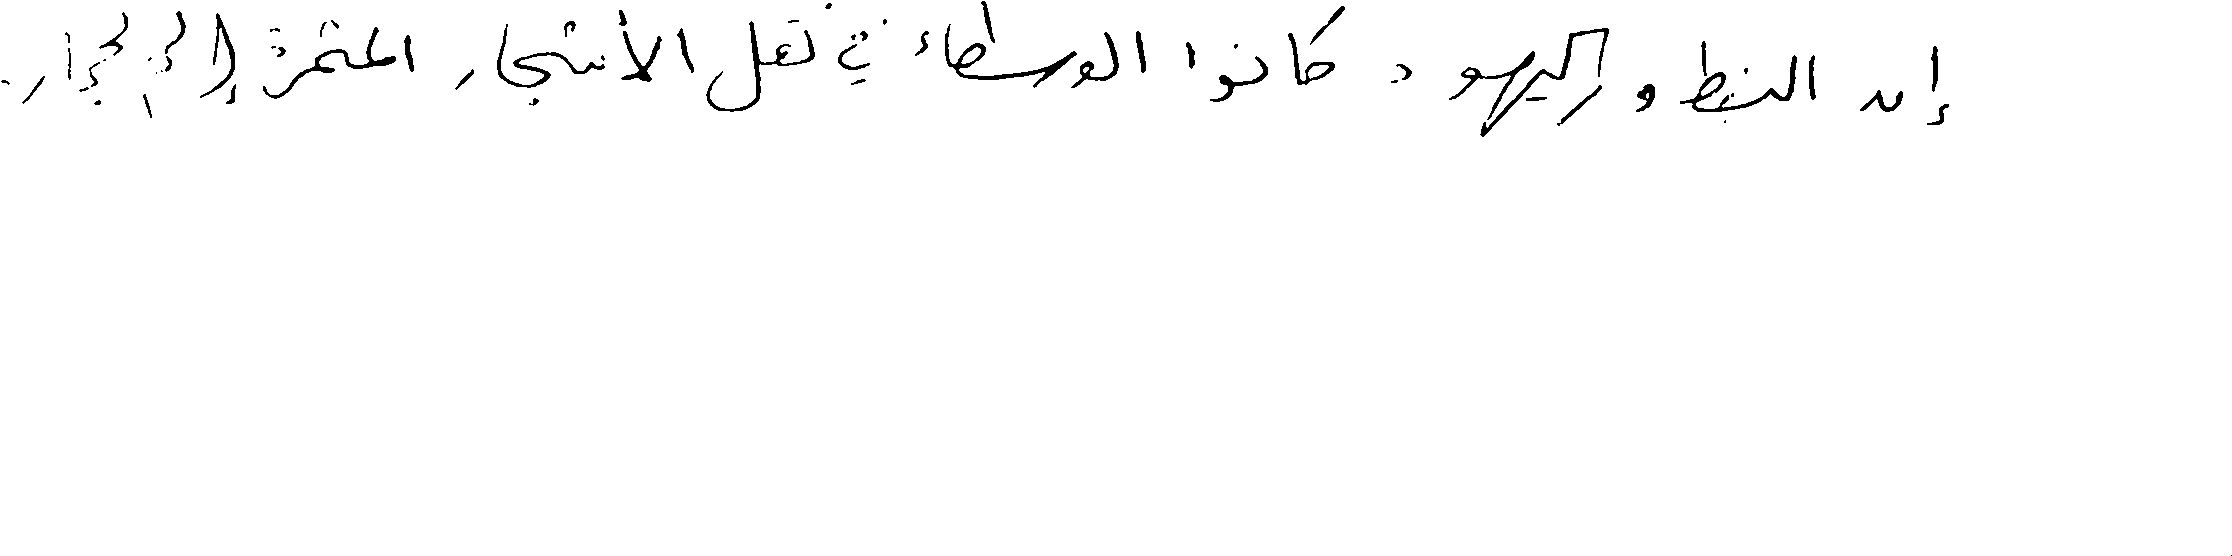 إن النبط واليهود كانوا الوسطاء في نقل الأشجار المثمرة إلى